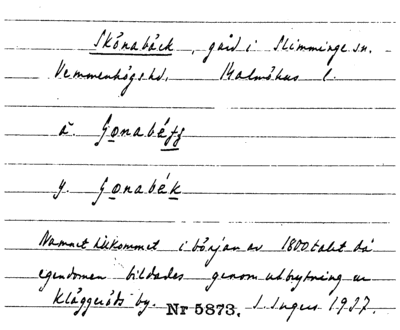 Skönabäck, gård i Slimminge sn.
Vemmenhögs hd, Malmöhus l.
ä. Gonabéjg
y. Gonabék
Namnet tillkommet i början av 1800talet då
egendomen bildades genom utbrytning ur
Kläggeröds by. Nr 5873. I. Ingers 1937.